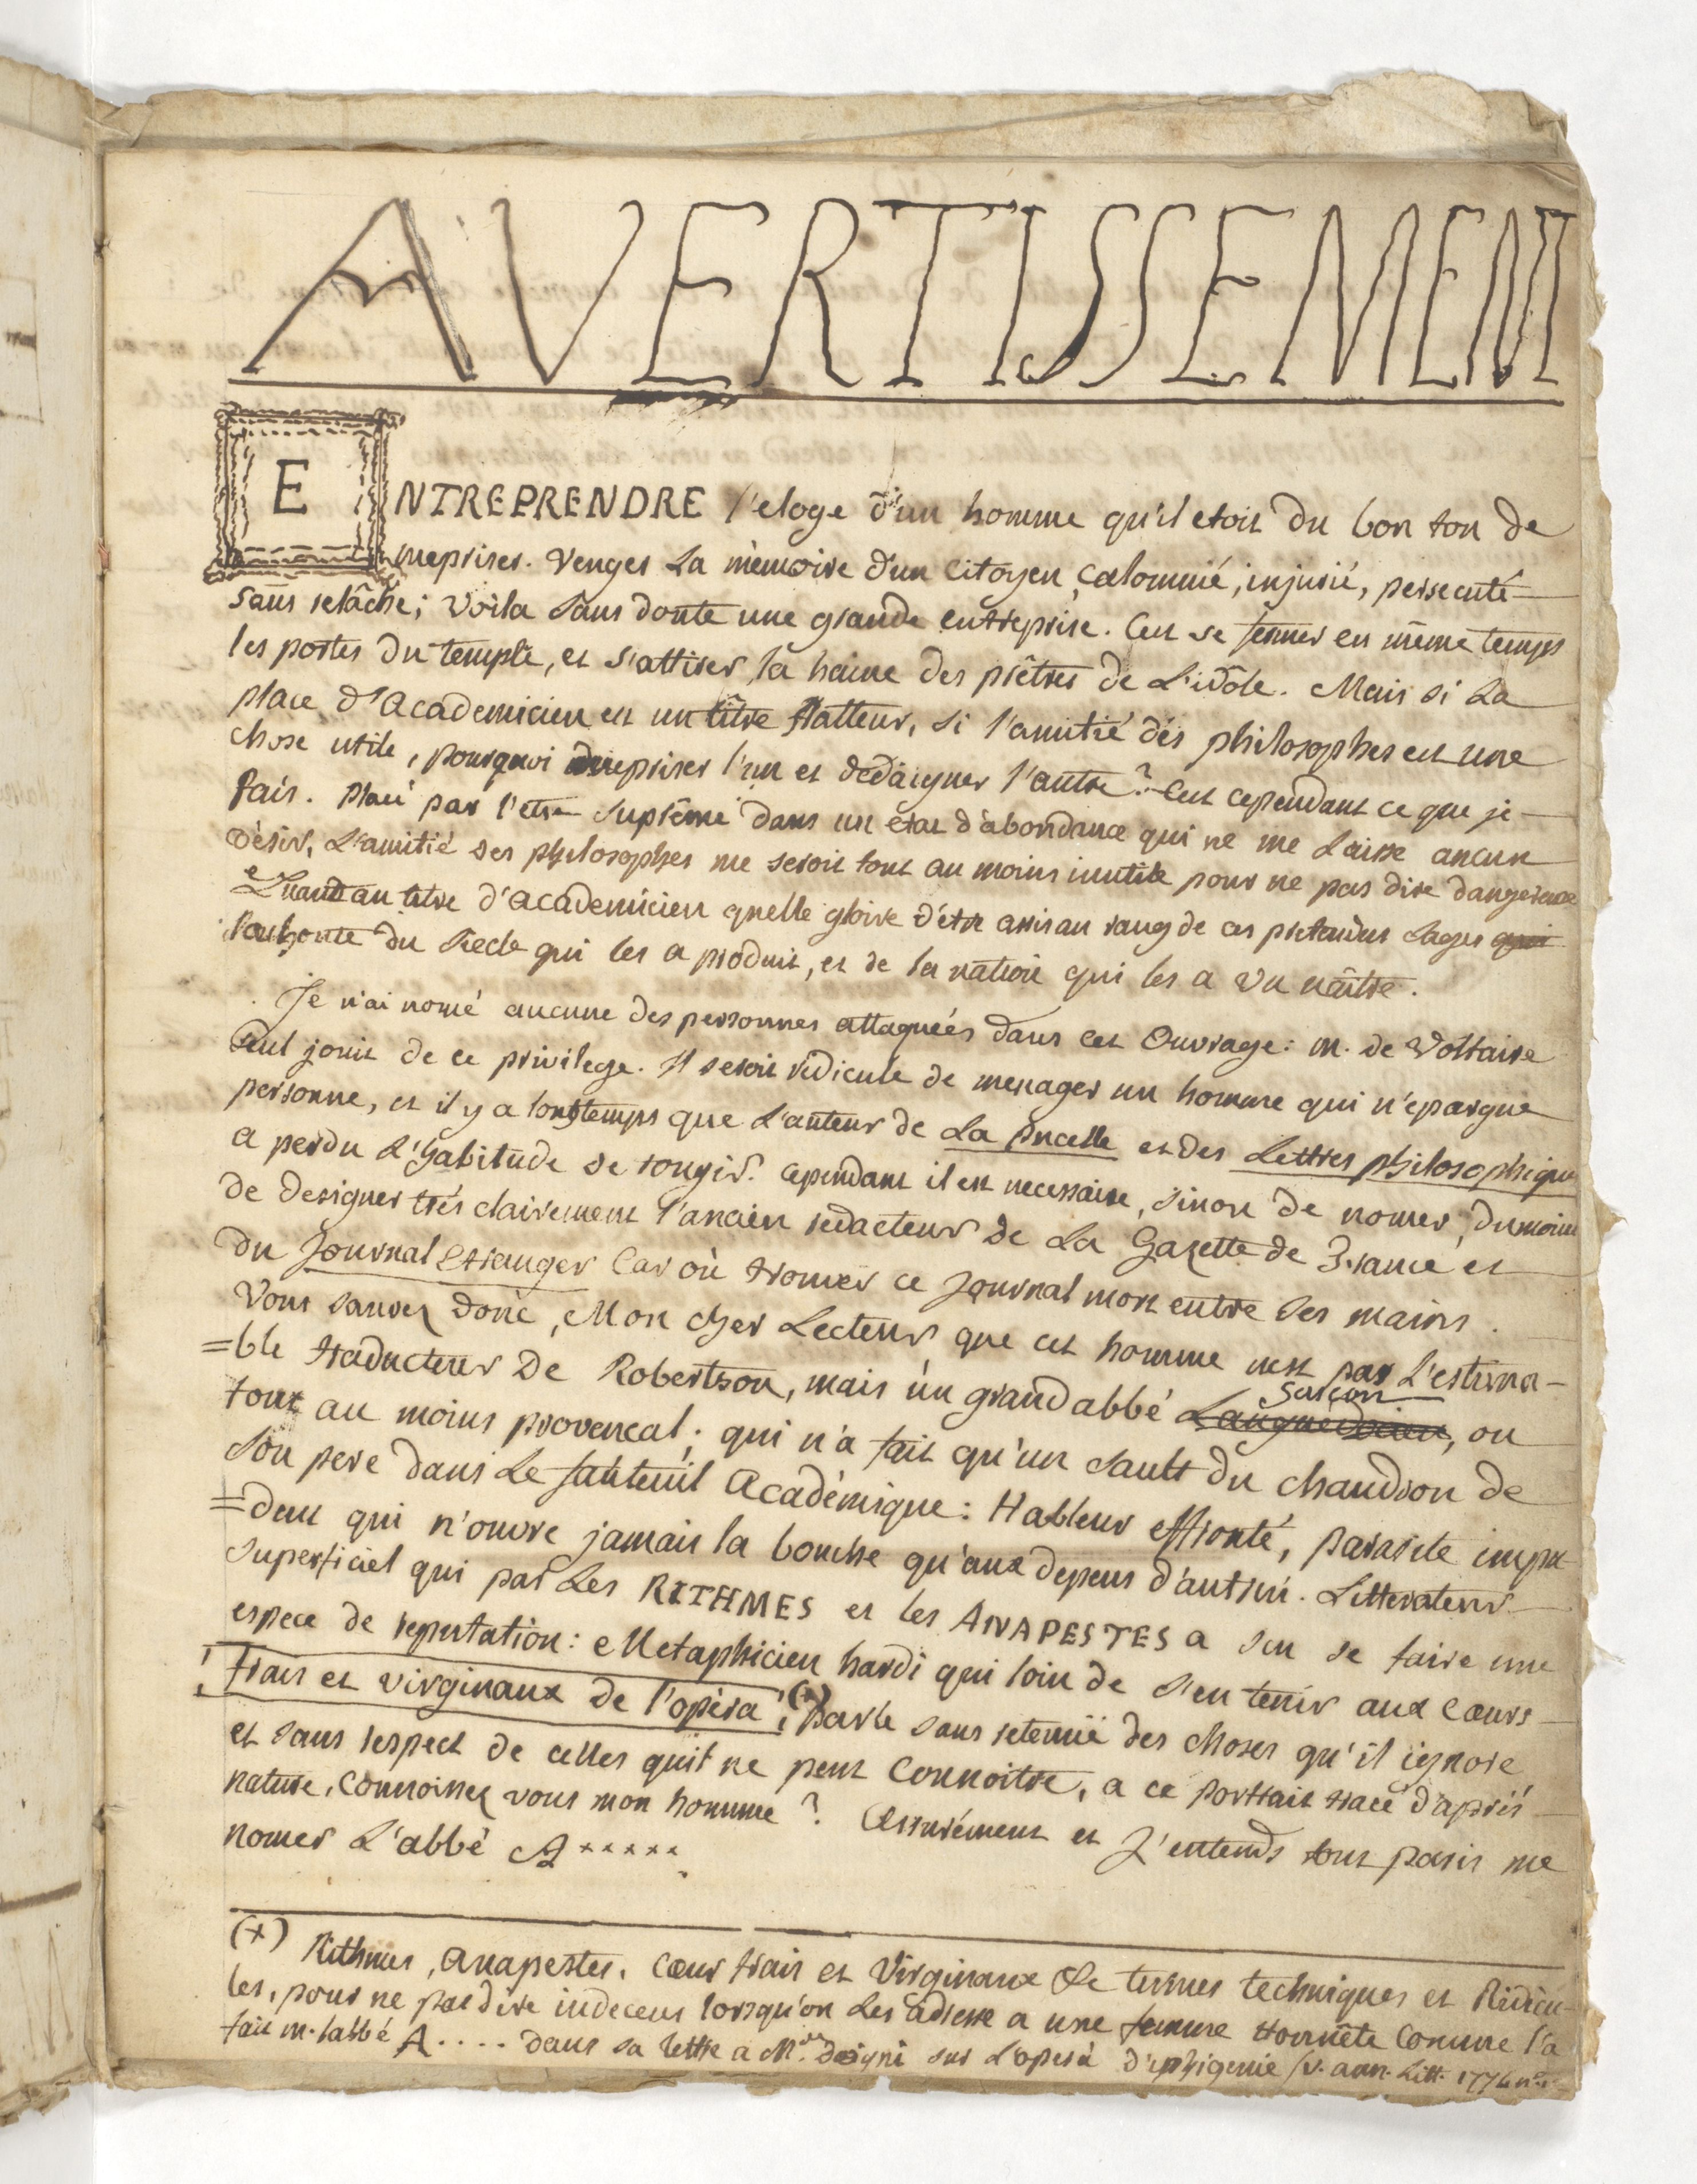 AVERTISSEMENT
ENTREPRENDRE l'eloge d'un homme qu'il etoit du bon ton de
mepriser. Venger La mèmoire d'un Citoyen, Calomnié, injurié, persecuté
sans relâche; voila sans doute une grande entreprise. C'est se fermer en même temps
les portes du temple, et s'attirer la haine des prêtres de L'idôle. Mais si La
place d'Academicien est un tître flatteur, si l'amitié des philosophes est une
chose utile, pourquoi mepriser l'un et dedaigner l'autre? C'est cependant ce que je
fais. Placé par l'etre Suprême dans un etat d'abondance qui ne me Laisse aucun
désir, L'amitié des philosophes me seroit tout au moins inutile pour ne pas dire dangereuse
Quand au titre d'academicien quelle gloire d'étre assis au rang de ces pretendus sages qui
sont honte du Siecle qui les a produit, et de la nation qui les a vu naître.
Je n'ai nomé aucune des personnes attaquées dans cet Ouvrage: M. de Voltaire
seul jouit de ce privilege. Il seroit ridicule de menager un homme qui n'epargne
personne, et il y a longtemps que L'auteur de La Pucelle et des Lettres philosophique
a perdu L'habitude de rougir. Cependant il est necessaire, sinon de nomer, du moins
de designer trés clairement l'ancien redacteur de La Gazette de France et
du Journal Etranger Car où trouver ce Journal mort entre ses mains.
Vous saurez donc, Mon cher Lecteur que cet homme n'est pas L'estima-
=ble traducteur De Robertson, mais un grand abbé Languedocien Gascon, ou
tout au moins provencal; qui n'a fait qu'un Sault du chaudron de
Son pere dans Le fauteuil Académique: Hableur effronté, parasite impu-
=dent qui n'ouvre jamais la bouche qu'aux depens d'autrui. Litterateur
Superficiel qui par Les RITHMES et les ANAPESTES a sçu se faire une
espece de reputation: Metaphicien hardi qui loin de s'en tenir aux Cœurs
frais et virginaux de l'opèra, (x) parle sans retenuë des choses qu'il ignore
et sans respect de celles quil ne peut Connoitre, a ce portrait tracé d'aprés
nature, Connoissez vous mon homme? Assurément et J'entends tout paris me
nomer L'abbé A*****.
(x) Rithmes, anapestes, Cœur frais et Virginaux de termes techniques et Ridicu-
les, pour ne pas dire indecens lorsqu'on Les adresse a une femme Honnête Comme l'a
fait m. l'abbé A.... dans sa lettre a Md. sur L'operà d'iphigenie (v. ann. Litt. 1774